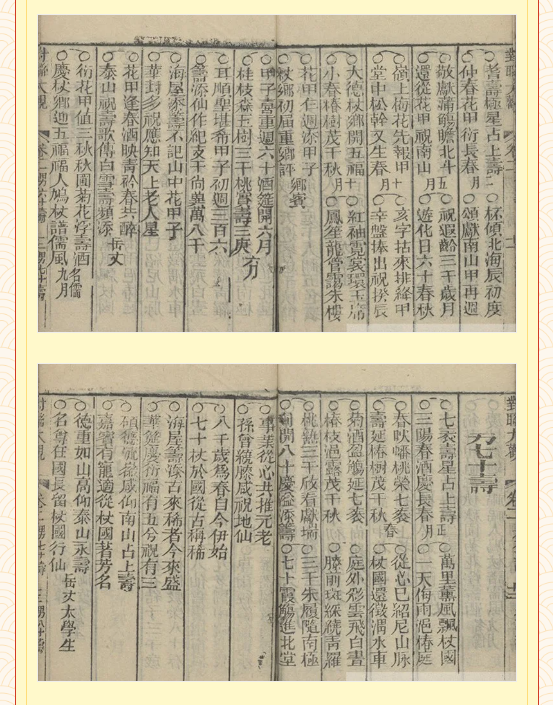 對聯大觀
耆壽極星占上壽
杯傾北海辰初度
仲春花甲衍長春月
頌獻南山甲再週
敬獻蒲觴瞻北斗五
祝遐齡三千歲月
還從花甲祝南山月
遊花日六十春秋
嶺上梅花先報甲十
亥字拈來排絳甲
堂中松幹又生春月
幸盤捧出祝揆辰
大德杖鄉開五福十
紅袖霓裳環玉席
小春椿樹茂千秋月
鳳笙龍管靄朱樓
花甲年週添甲子
杖鄉初屆重鄉評
鄉賓
甲子喜重週六十酒筵開六月
桂枝森五樹三千桃實壽三庚
耳順聖堪希甲子初週三百六
籌添仙作紀支干尚羨萬八千
海屋添壽不記山中花甲子
華封多祝應知天上老人星
花甲逢春酒映青衿春共醉
泰山祝壽歌傳白雪壽頻添
岳丈
衍花甲值三秋秋圃菊花浮壽酒
慶杖鄉廸五福福人鳩杖譜儒風
名儒九月
對聯大觀
男七十壽
七袠壽星占上壽正
萬里薰風飄杖國
三陽春酒慶長春月
春映蟠桃榮七袠
從心已紹尼山脉
壽延椿樹茂千秋
春
杖國還徵渭水車
菊酒盈觴延七袠
庭外彩雲飛白晝
椿枝浥露茂千秋
膝前斑綵繞青羅
桃熟三千欣看獻瑞
三千朱履隨南極
筵開八十慶溢添籌
七十霞觴進北堂
事業從心共推元老
孫曾繞膝咸祝地仙
八千歲爲春自今伊始
七十杖於國從古稱稀
海屋籌添古來稀者今來盛
華筵慶衍福有五兮祝有三
嘉賓有龍適從杖國著芳名
德重如山高仰泰山永壽
名會在國長留杖國行仙
岳丈太學生